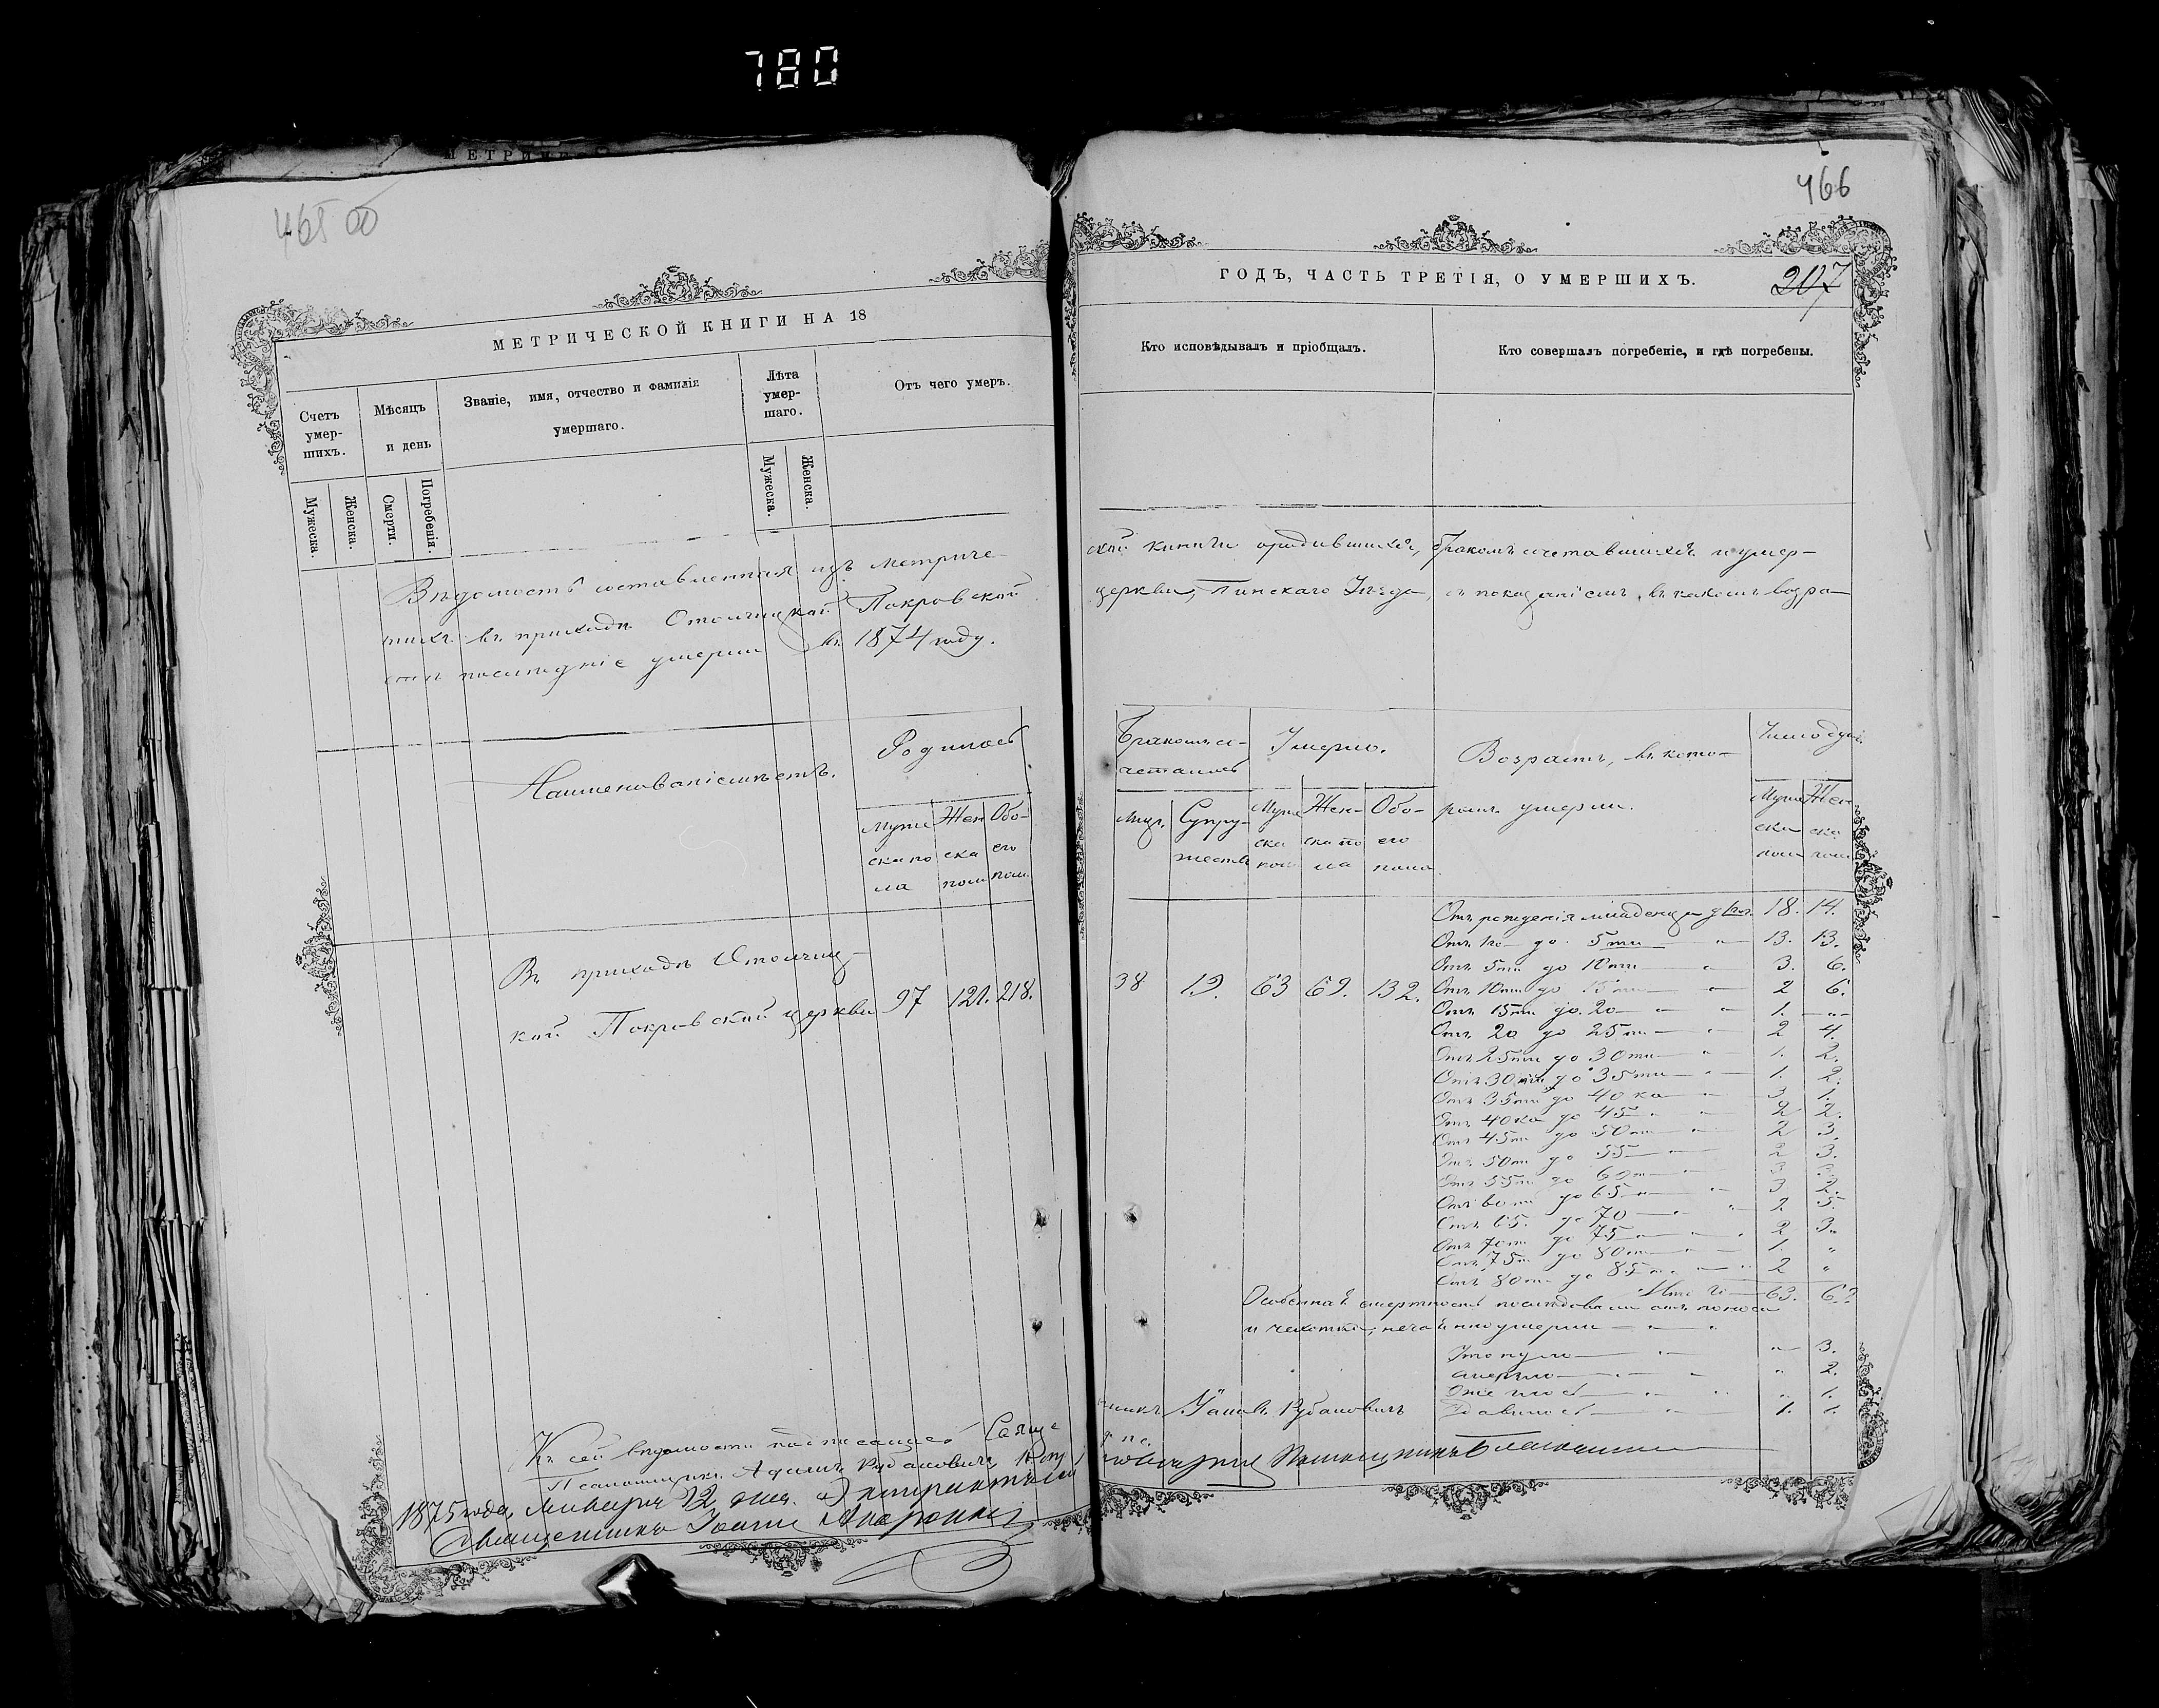 780
465 об
МЕТРИЧЕСКОЙ КНИГИ НА 18
Счетъ умер-шихъ.
Мѣсяцъ и день
Званіе, имя, отчество и фамилія умершаго.
Лѣта умер-шаго.
Отъ чего умеръ.
Мужеска.
Женска.
Смерти.
Погребенія.
Мужеска.
Женска.
Вѣдомость составленная изъ метриче-
шихъ въ приходѣ Столицкой Покровской
стѣ послѣдніе умерли въ 1874 году.
Наименованіе мѣстъ.
Родилось
Муже Жен Обо-
ска по ска его
ла пола пола
Въ приходѣ
кой Покровской церкви 97 121. 218.
Къ сей вѣдомости подписался Свяще
Псаломщикъ Адамъ Рубановичъ
1875 года, Января 12 дня.
Священникъ Іоаннъ
466
ГОДЪ, ЧАСТЬ ТРЕТІЯ, О УМЕРШИХЪ.
207
Кто исповѣдывалъ и пріобщалъ.
Кто совершалъ погребеніе, и гдѣ погребены.
ской книги о родившихся, бракомъ сочетавшихся и умер-
церкви, Пинскаго Уѣзда, съ показаніемъ, въ какомъ возра-
Бракомъ со-
четалось
Умерло.
Возрастъ, въ кото-
ромъ умерли.
Число душъ.
Лицъ. Супру-
жествъ
Муже Жен- Обо-
ска ска по его
пола ла пола
Муже Жен
ска ска
пола пола
38 19. 63 69. 132.
Отъ рожденія младенцевъ 18. 14.
Отъ 1го до 5ти 13. 13.
Отъ 5ти до 10ти 3. 6.
Отъ 10ти до 15ти 2 6.
Отъ 15ти до 20 1. „
Отъ 20 до 25ти 2 4.
Отъ 25ти до 30ти 1. 2.
Отъ 30ти до 35ти 1. 2.
Отъ 35ти до 40ка 3 1.
Отъ 40ка до 45 2 2.
Отъ 45ти до 50ти 2 3.
Отъ 50ти до 55 2 3.
Отъ 55ти до 60ти 3
Отъ 60ти до 65 3 2.
Отъ 65 до 70 2 5.
Отъ 70ти до 75 2 3.
Отъ 75ти до 80ти 1. „
Отъ 80ти до 85 2 „
Итого 63. 69
Особенная смертность послѣдовала отъ поноса
и чахотки, нечаянно умерли
Утонуло „ 3.
„ 2.
„ 1.
1. 1.
нникъ Рубановичъ